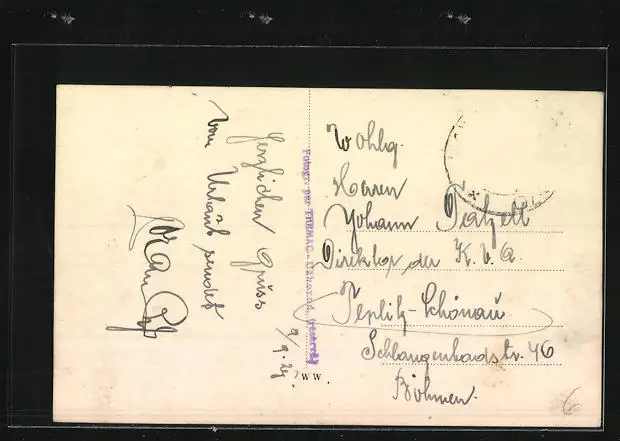 Herzlichen Gruss
vom Urlaub sendet
9/9.27.
WW.
Wohlg.
Herren
Johann
Direktor der K. V. A.
Teplitz-Schönau
Schlangenbadstr. 46
Böhmen.
6